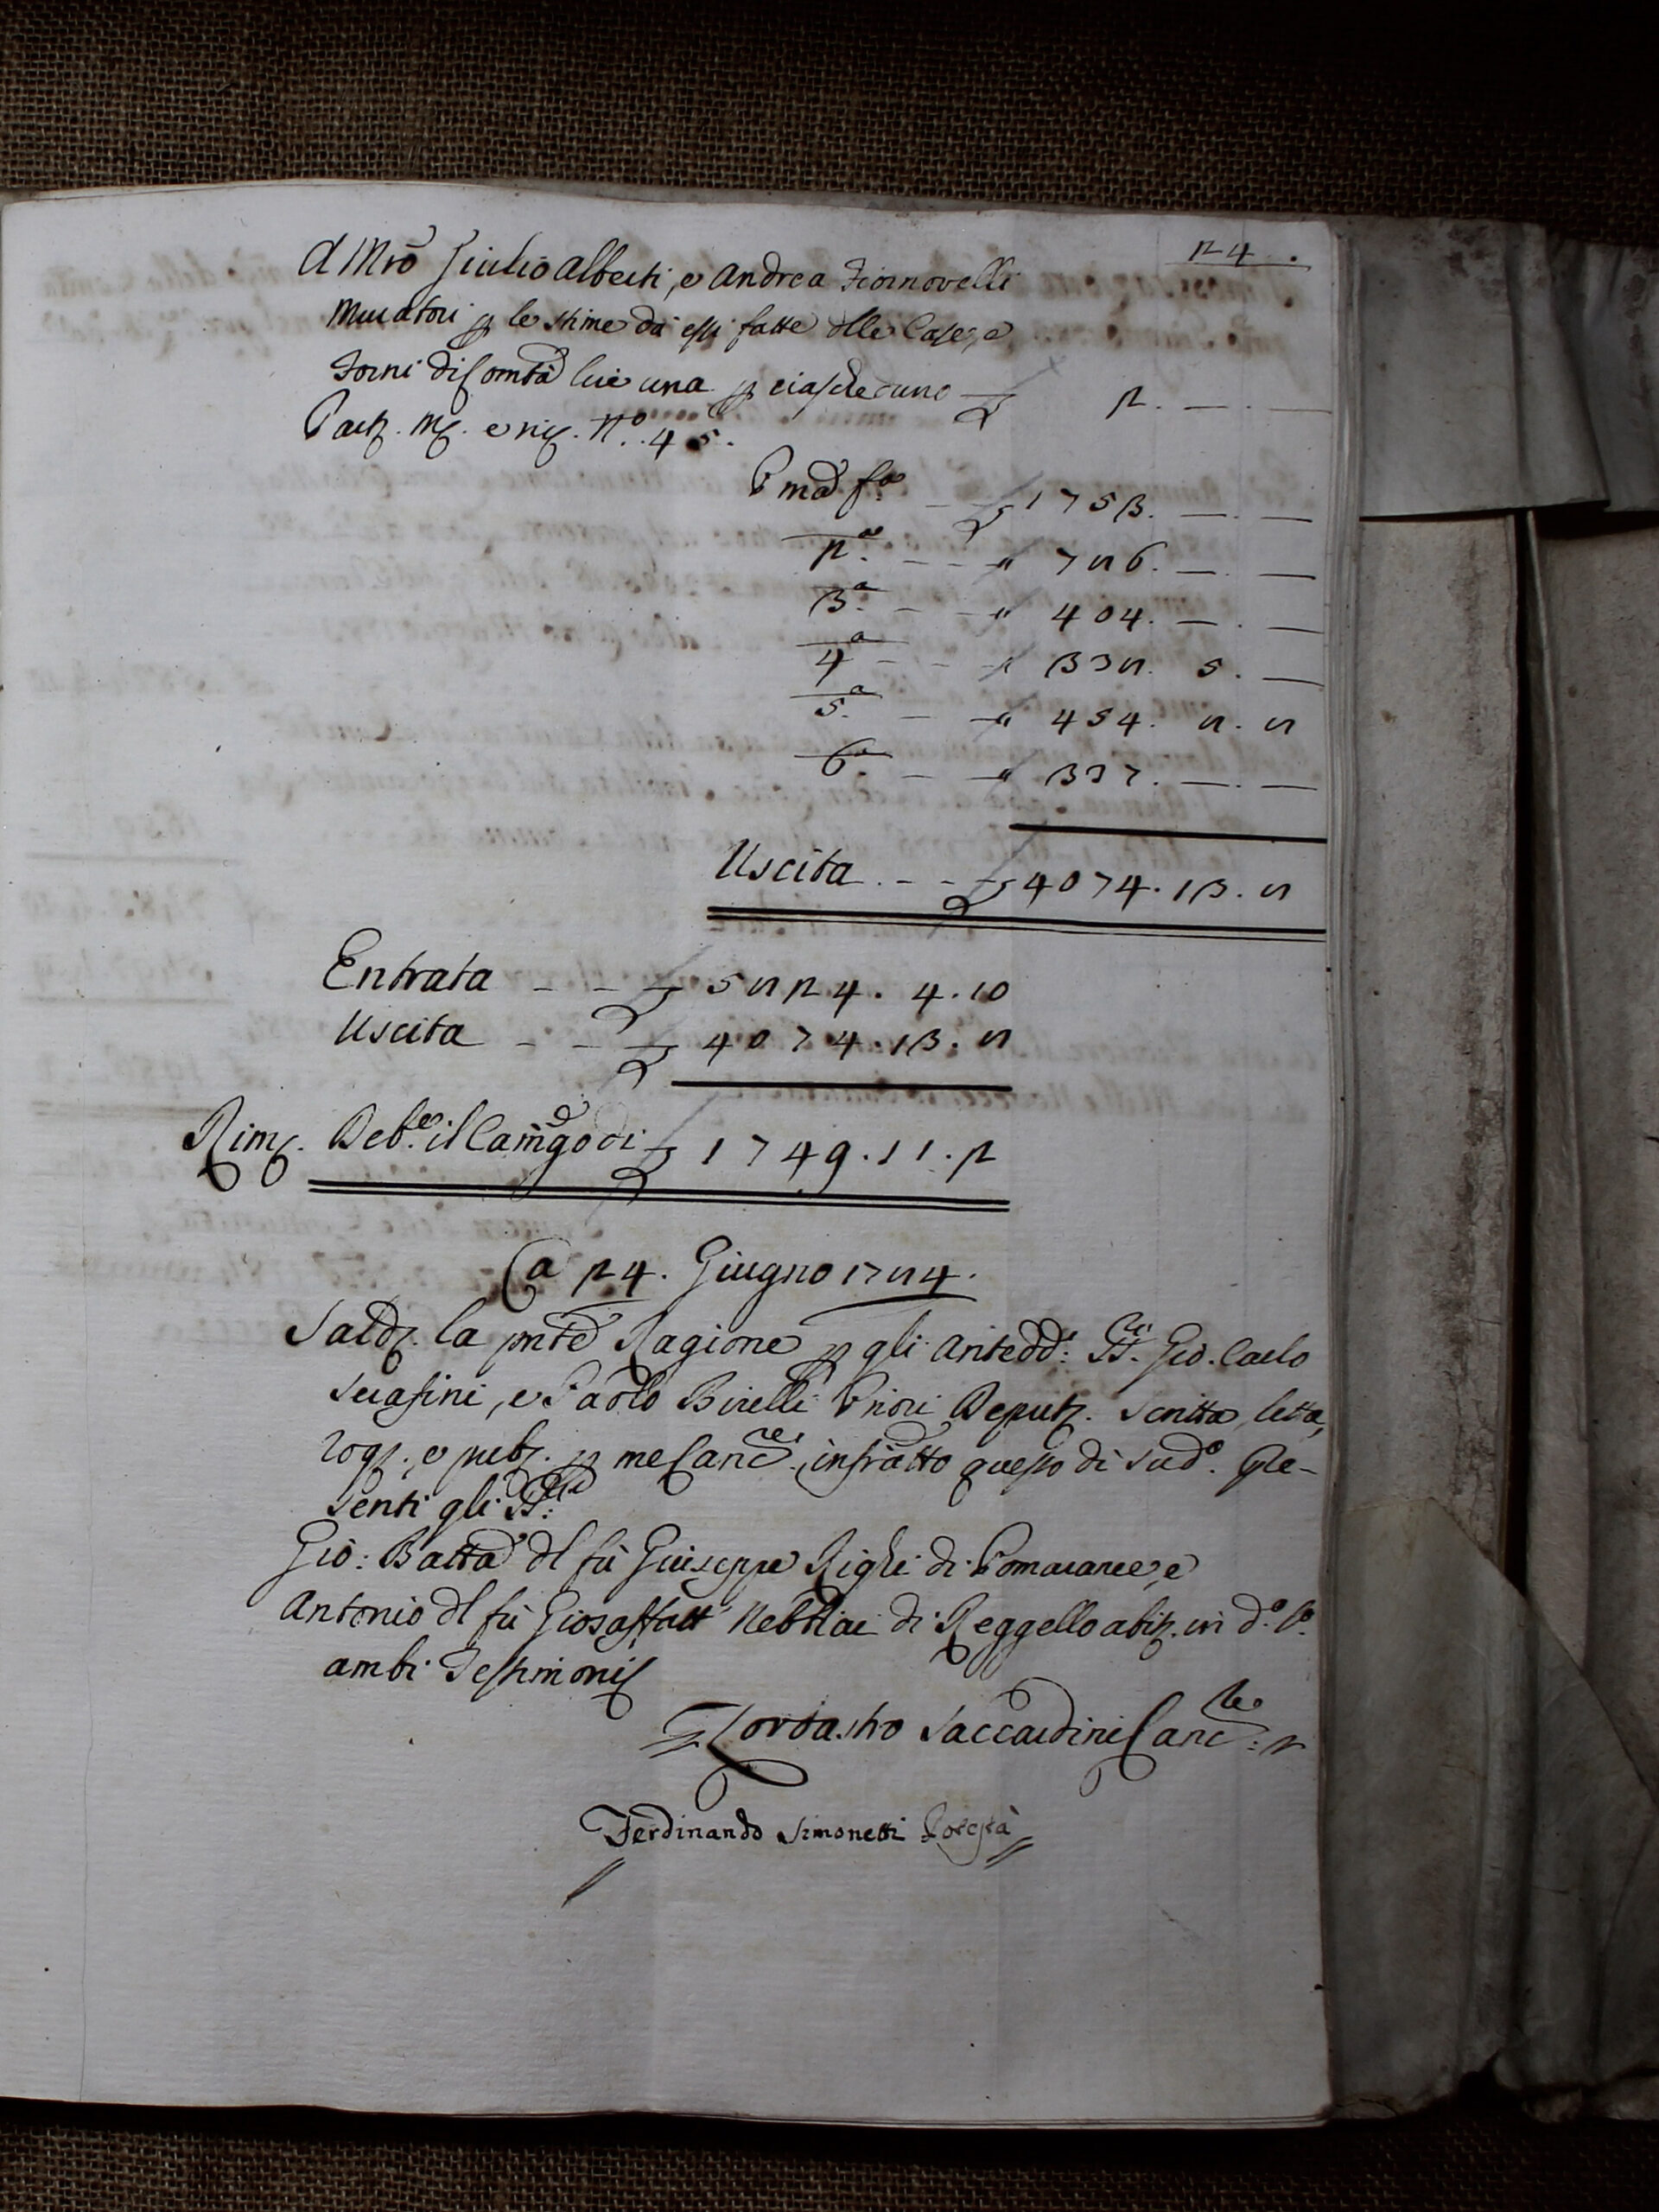 24.
A Mro Giulio Alberti, e Andrea Fiornovelli
Muratori p le stime da essi fatte dlle Case, e
Forni di Comta lire una p ciascheduno £ 2. — . —
Partz. Mz. e riz. No. 45.
Pma fa. — £ 1753. — . —
2a. — — " 786. — . —
3a. — — " 404. — . —
4a — — " 338. 5. —
5a. — — " 454. 8. 8
6a. — — " 337. — . —
Uscita - - - £ 4074. 13. 8
Entrata - - - £ 5824. 4. 10
Uscita - - - £ 4074. 13. 8
Rimz. Debre il Camgo di £ 1749. 11. 2
A 24. Giugno 1784.
Saldz. la pnte Ragione p gli antedd: SSri. Gio. Carlo
Serafini, e Paolo Birelli Priori Deputz. Scritta, letta,
rogz., e pubz. p me Cancre. infratto questo dì sudo. Pre-
senti gli SSri:
Gio: Batta dl fù Giuseppe Righi di Pomarance, e
Antonio dl fù Giosaffatt Nebbiai di Reggello abitz. in do. Po.
ambi Testimonij
Torquasto Saccardini Cancre:
Ferdinando Simonetti Potestà